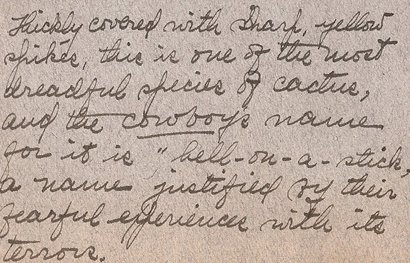 Thickly covered with sharp, yellow
spikes, this is one of the most
dreadful species of cactus,
and the cowboys name
for it is "hell-on-a-stick,
a name justified by their
fearful experiences with its
terrors.